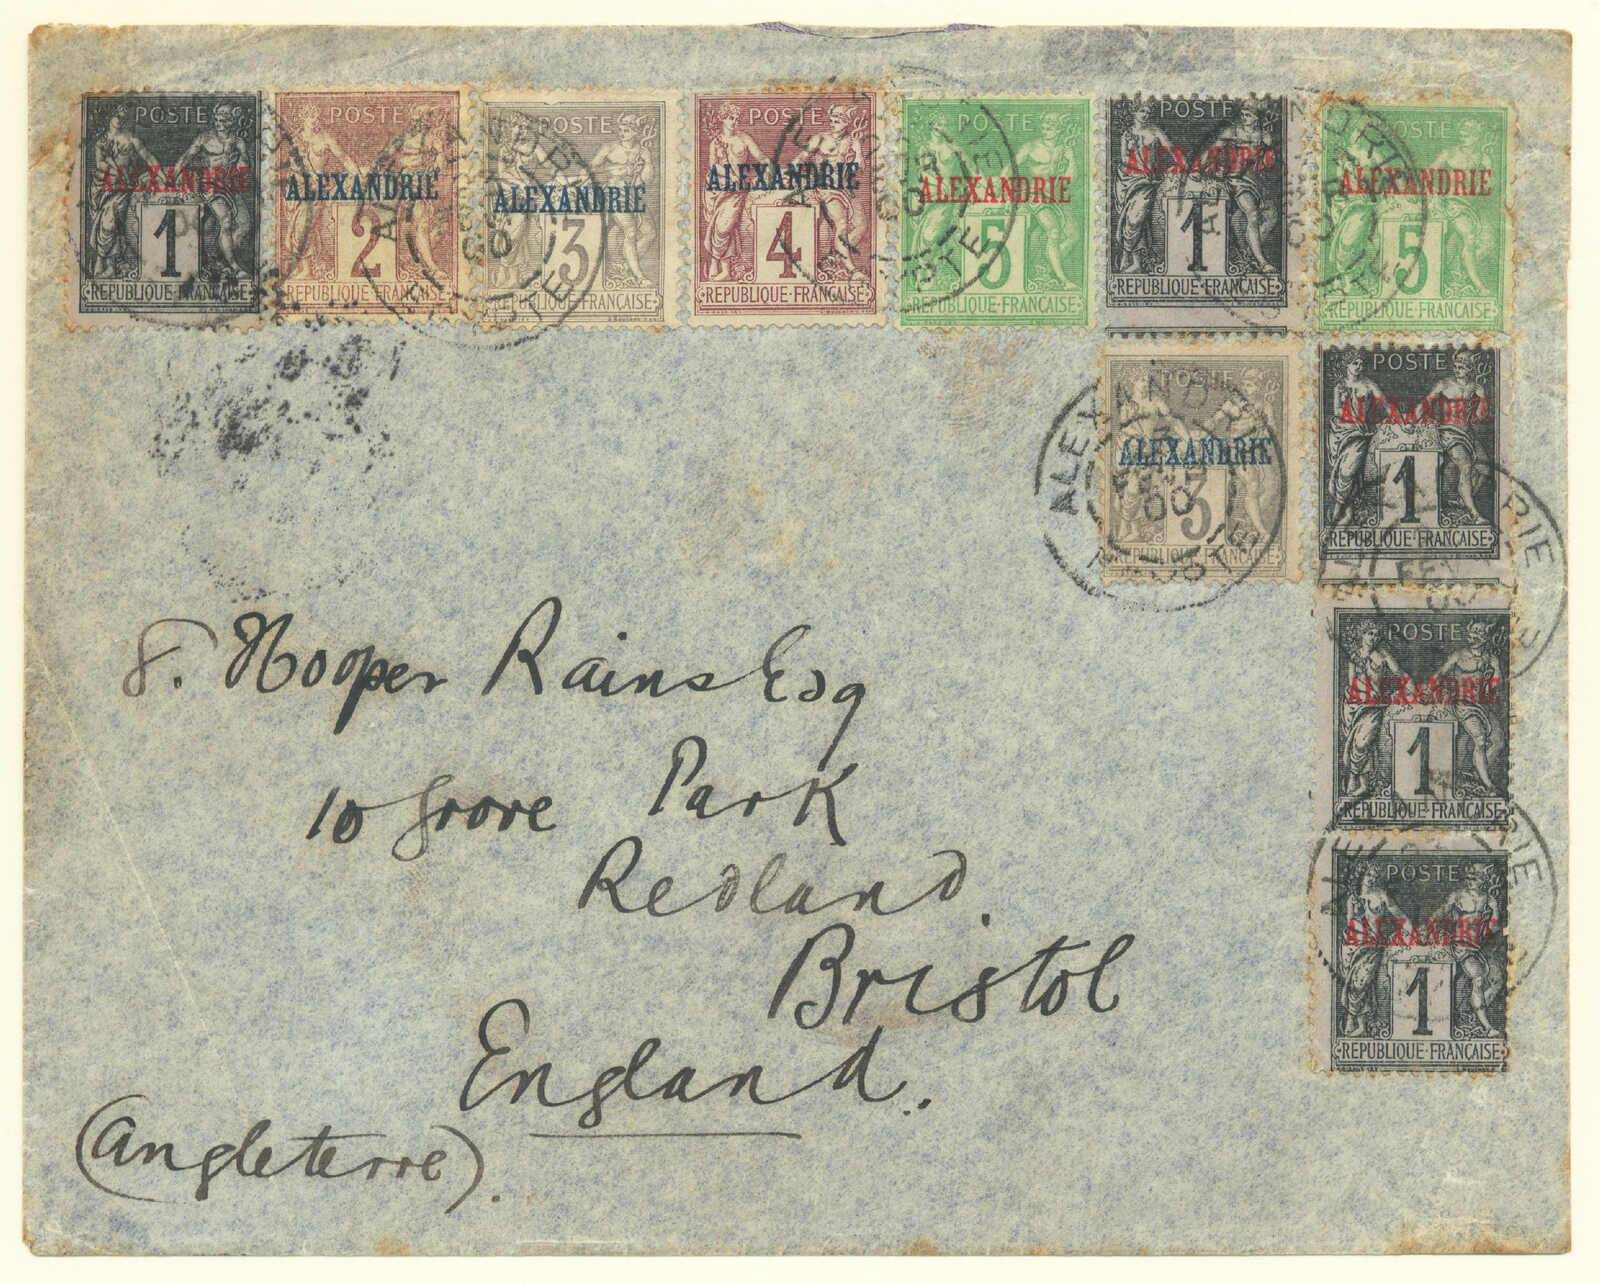 POSTE POSTE POSTE POSTE POSTE
ALEXANDRIE ALEXANDRIE ALEXANDRIE ALEXANDRIE ALEXANDRIE ALEXANDRIE ALEXANDRIE
1 2 3 4 5 1 5
REPUBLIQUE·FRANÇAISE REPUBLIQUE·FRANÇAISE REPUBLIQUE·FRANÇAISE REPUBLIQUE·FRANÇAISE REPUBLIQUE·FRANÇAISE REPUBLIQUE·FRANÇAISE
POSTE POSTE
ALEXANDRIE ALEXANDRIE
3 1
REPUBLIQUE·FRANÇAISE REPUBLIQUE·FRANÇAISE
ALEXANDRIE
00
POSTE
ALEXANDRIE
1
REPUBLIQUE·FRANÇAISE
POSTE
ALEXANDRIE
1
REPUBLIQUE·FRANÇAISE
S. Hooper Rains Esq
10 Grove Park
Redland.
Bristol
England.
(Angleterre).